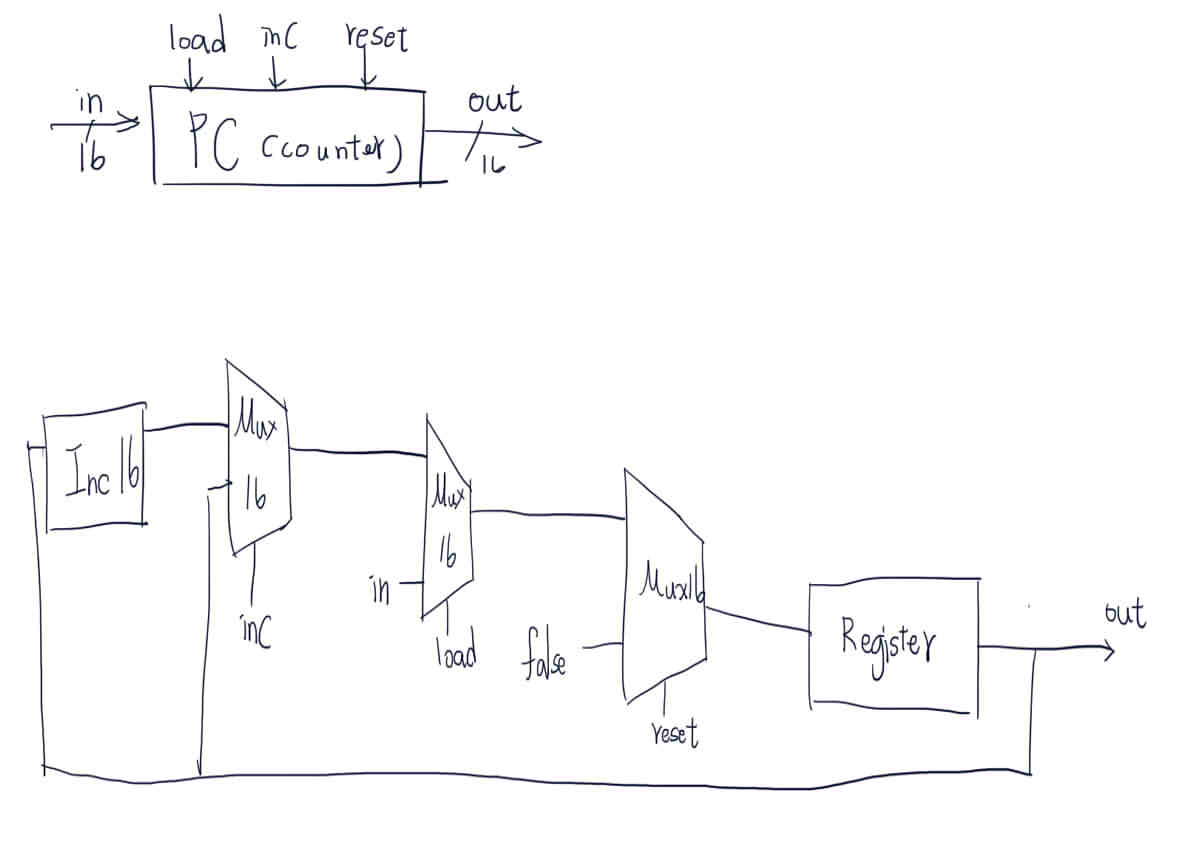 load inc reset
in
16
PC (counter)
out
16
Inc16
Mux
16
inc
Mux
16
in
load
Mux16
false
reset
Register
out